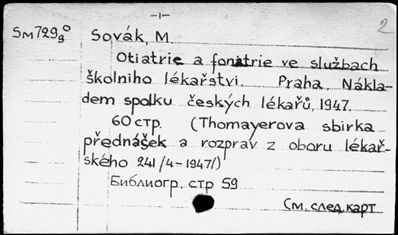 -1-
2
Sм729g°
Sovák, M
Otiatrie a foniatrie ve službach
školniho lékařstvi. Praha, Nákla-
dem spolku českých lékařů, 1947.
60 стр. (Thomayerova sbirka
přednášek a rozprav z oboru lékař-
ského 241/4-1947/)
Библиогр. стр 59
См. след карт